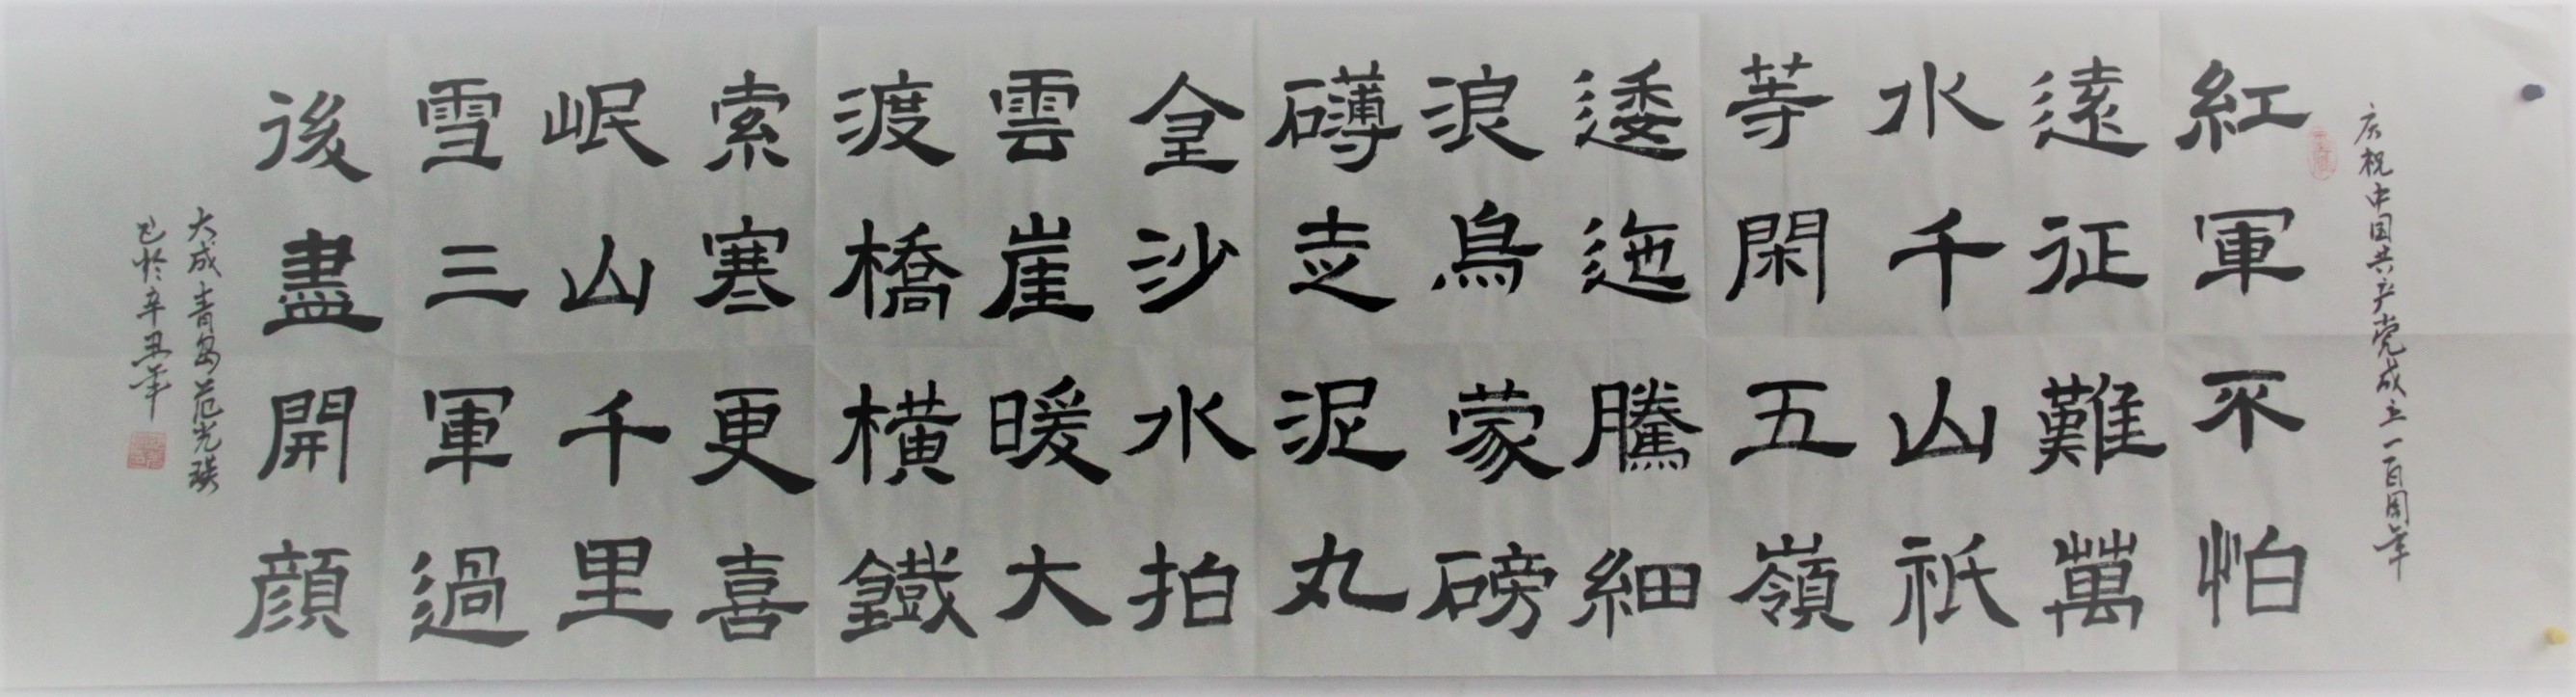 庆祝中国共产党成立一百周年
紅軍不怕
遠征難萬
水千山祇
等閑五嶺
逶迤騰細
浪烏蒙磅
礴走泥丸
金沙水拍
雲崖暖大
渡橋橫鐵
索寒更喜
岷山千里
雪三軍過
後盡開顏
大成青岛范光
於辛丑年